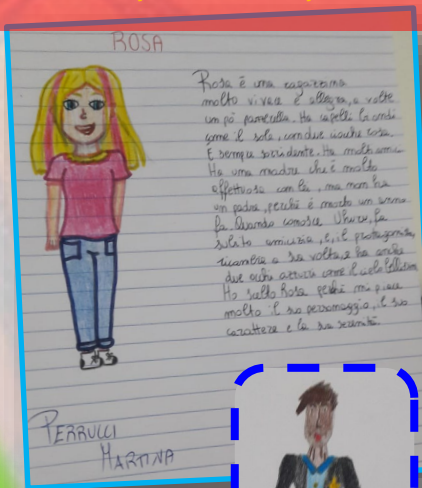 ROSA
Rosa è una ragazzina
molto vivace e allegra, a volte
un pò monella. Ha capelli biondi
come il sole, con due ciocche rosa.
È sempre sorridente. Ha molti amici.
Ha una madre che è molto
affettuosa con lei, ma non ha
un padre, perché è morto un anno
fa. Quando conosce fa
subito amicizia, e, il protagonista,
ricambia a sua volta, e ha anche
due occhi azzurri come il cielo
Ho scelto Rosa perché mi piace
molto il suo personaggio, il suo
carattere e la sua serenità
PERRUCCI
MARTINA